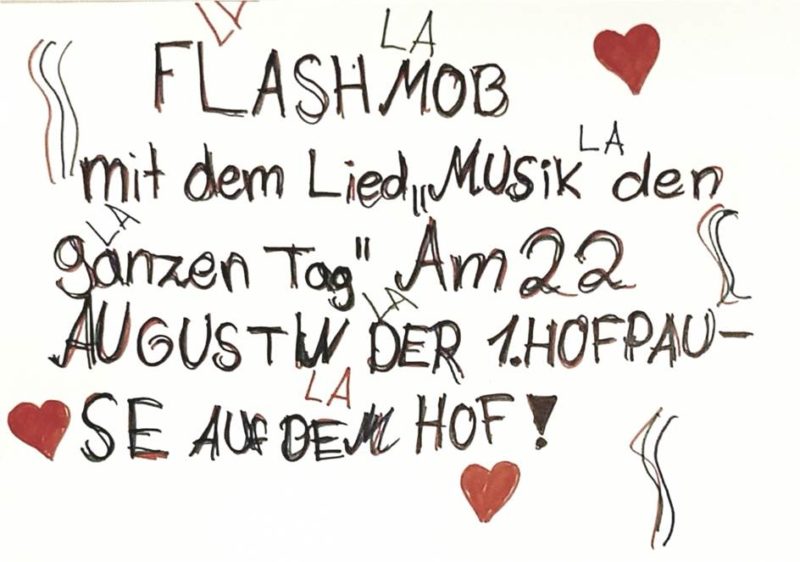 LA
LA
FLASHMOB
LA
mit dem Lied„MUSik den
LA
ganzen Tag" Am 22
LA
AUGUST IN DER 1.HOFPAU-
LA
SE AUF DEM HOF!